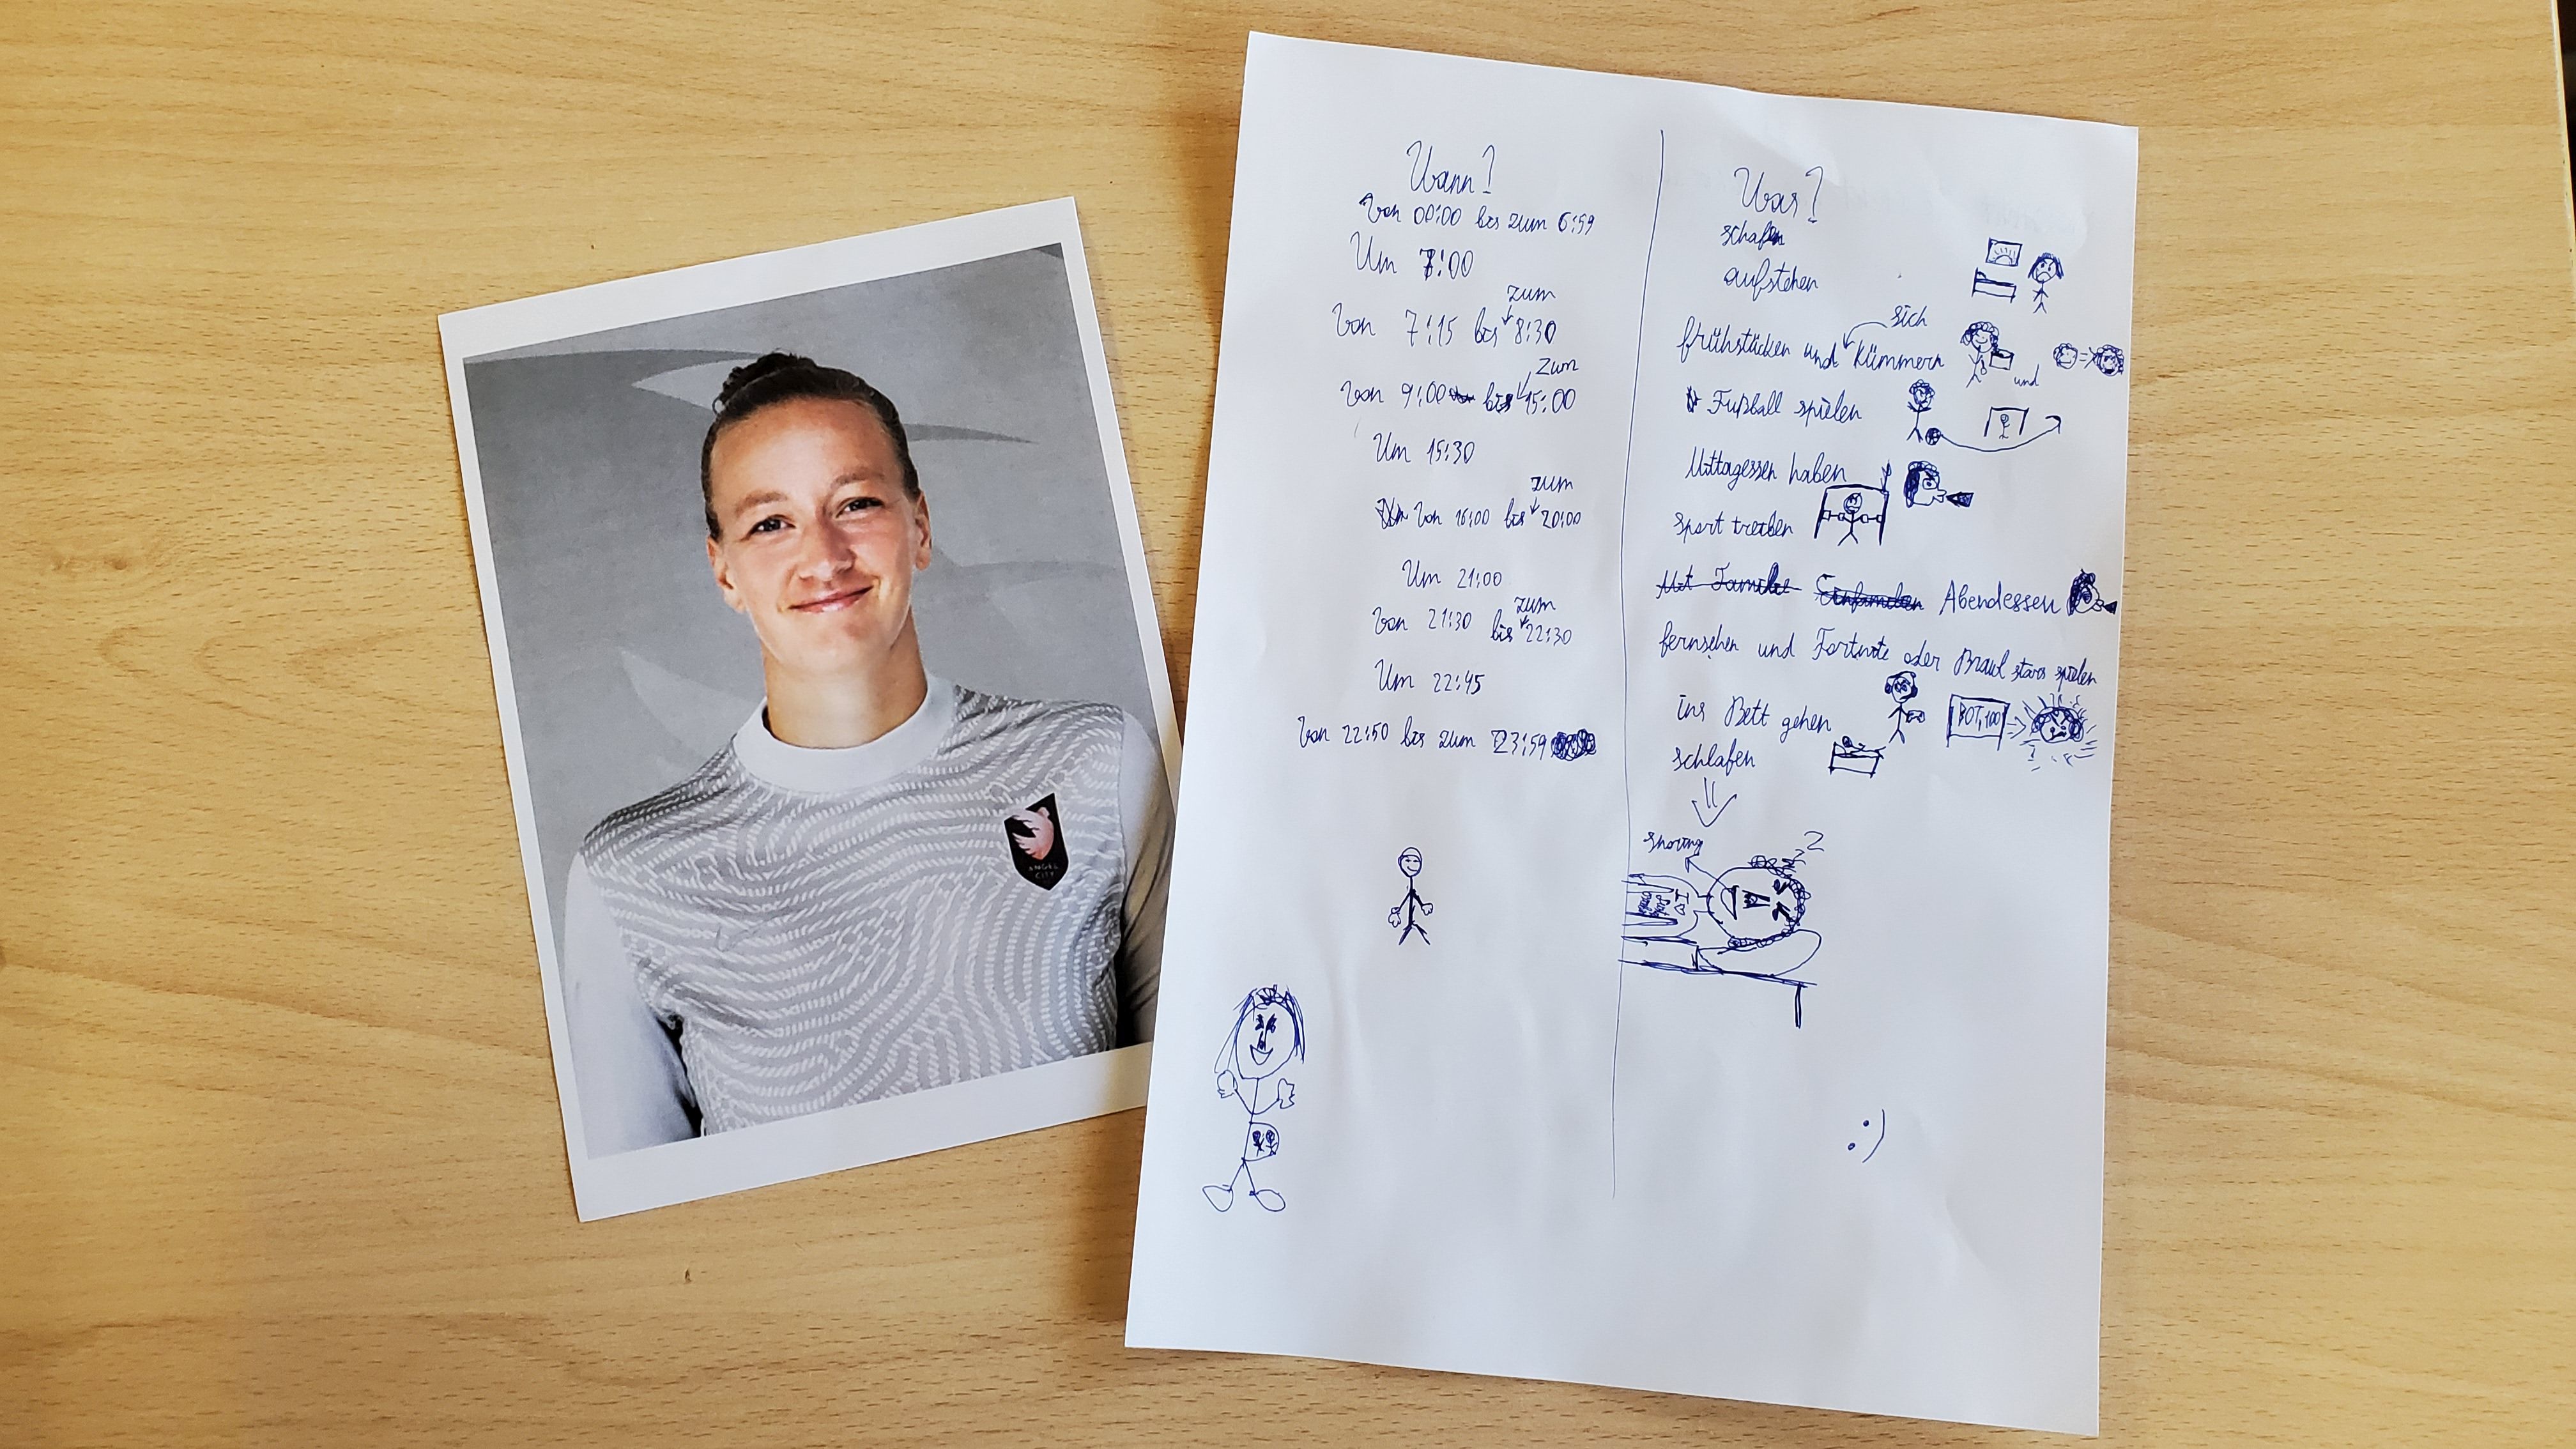 ANGEL
CITY
Wann?
Von 00:00 bis zum 6:59
Um 7:00
zum
Von 7:15 bis 8:30
zum
Von 9:00 bis 15:00
Um 15:30
zum
Von 16:00 bis 20:00
Um 21:00
zum
Von 21:30 bis 22:30
Um 22:45
Von 22:50 bis zum 23:59
Was?
schafen
aufstehen
sich
frühstücken und kümmern
und
Fußball spielen
Mittagessen haben
sport treiben
Mit Familie Abendessen
fernsehen und Fortnite oder Brawl stars spielen
ins Bett gehen
BOT, 100
schlafen
snoring
zzZ
:)